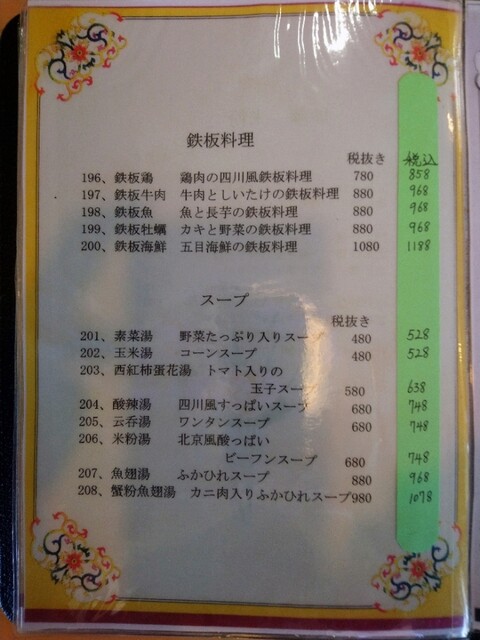 鉄板料理
税抜き 税込
196、鉄板鶏 鶏肉の四川風鉄板料理 780 858
197、鉄板牛肉 牛肉としいたけの鉄板料理 880 968
198、鉄板魚 魚と長芋の鉄板料理 880 968
199、鉄板牡蠣 カキと野菜の鉄板料理 880 968
200、鉄板海鮮 五目海鮮の鉄板料理 1080 1188
スープ
税抜き
201、素菜湯 野菜たっぷり入りスープ 480 528
202、玉米湯 コーンスープ 480 528
203、西紅柿蛋花湯 トマト入りの
玉子スープ 580 638
204、酸辣湯 四川風すっぱいスープ 680 748
205、云呑湯 ワンタンスープ 680 748
206、米粉湯 北京風酸っぱい
ビーフンスープ 680 748
207、魚翅湯 ふかひれスープ 880 968
208、蟹粉魚翅湯 カニ肉入りふかひれスープ980 1078